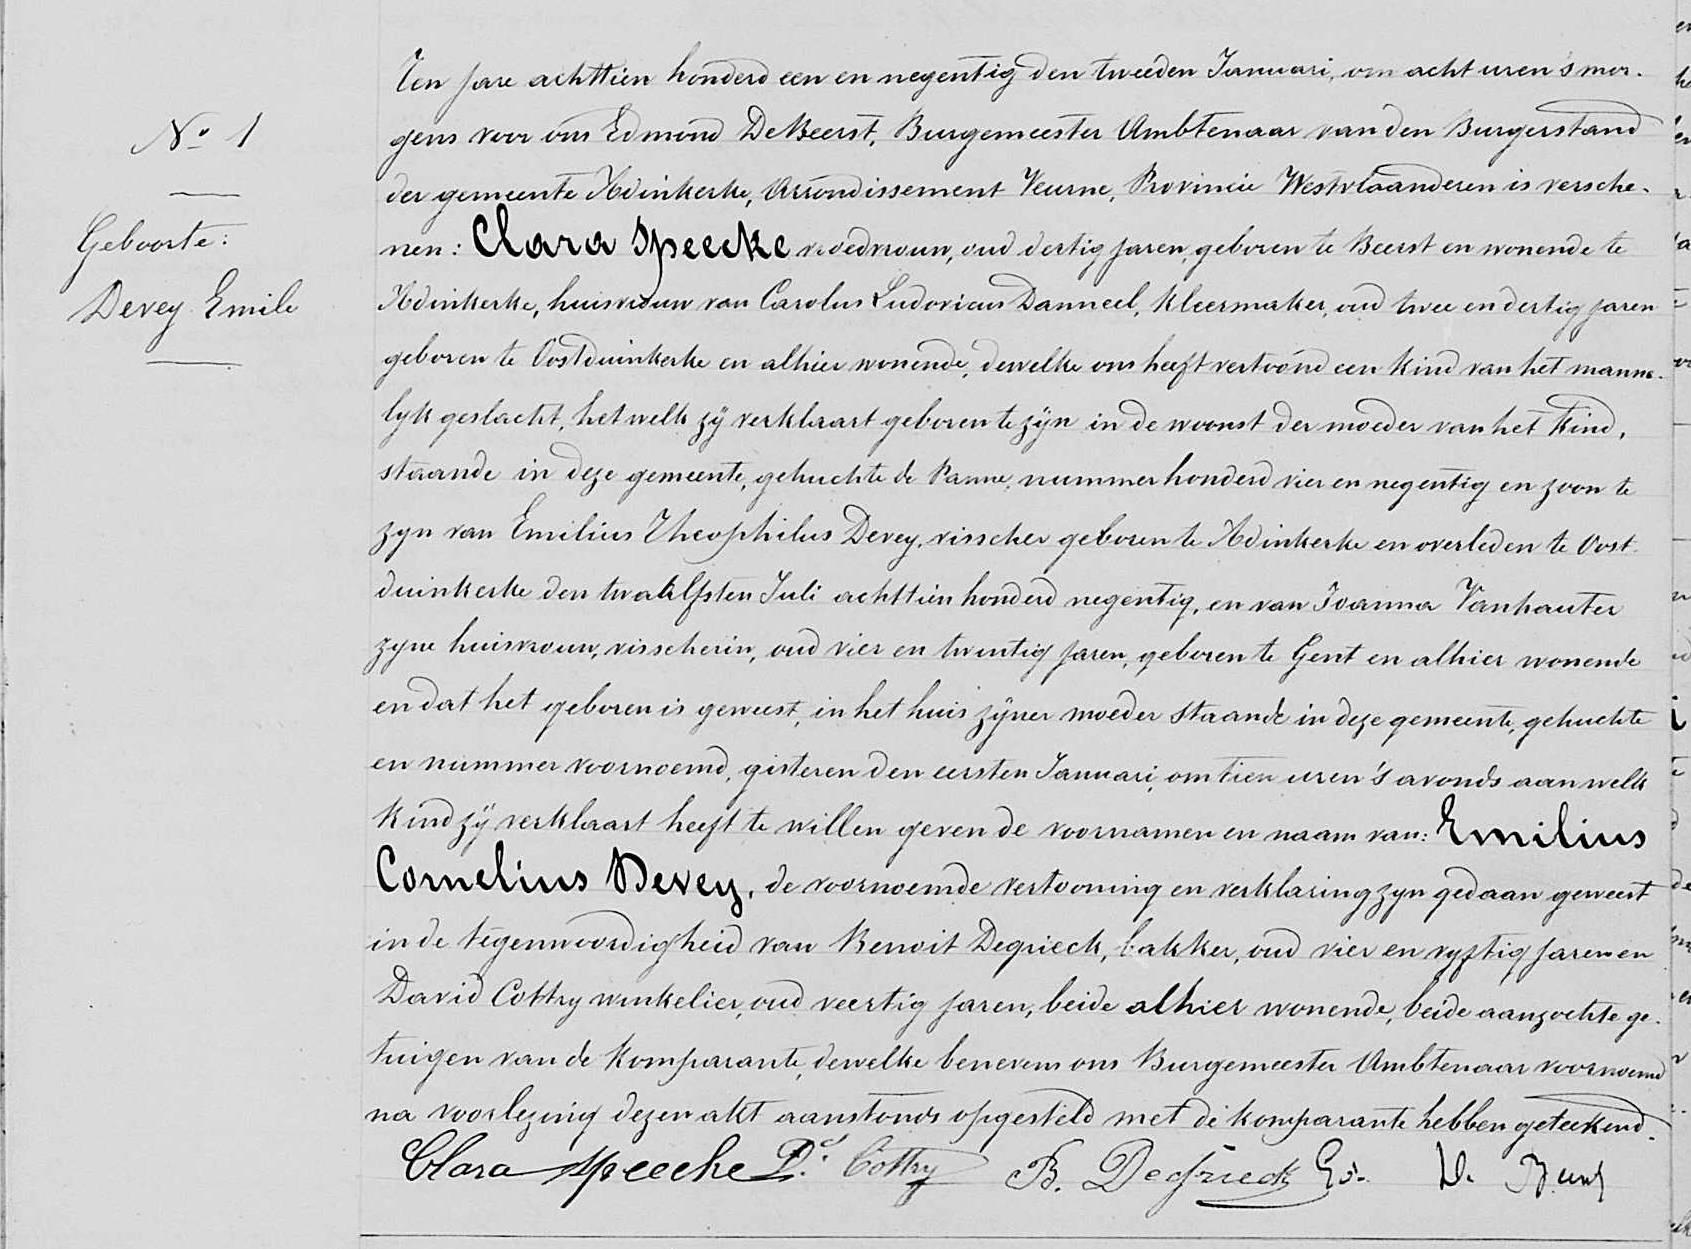 Ten jare achttien honderd een en negentig den tweeden Januari, om acht uren 's mor-
gens voor ons Edmond DeBeerst, Burgemeester Ambtenaar van den Burgerstand
der gemeente Adinkerke, Arrondissement Veurne, Provincie Westvlaanderen is versche-
nen: Clara Speecke vroedvrouw, oud dertig jaren, geboren te Beerst en wonende te
Adinkerke, huisvrouw van Carolus Ludovicus Danneel, kleermaker, oud twee en dertig jaren
geboren te Oostduinkerke en alhier wonende, dewelke ons heeft vertoond een kind van het manne-
lyk geslacht, het welk zij verklaart geboren te zijn in de woonst der moeder van het kind,
staande in deze gemeente, gehuchte de Panne, nummer honderd vier en negentig en zoon te
zyn van Emilius Theophilus Devey, visscher geboren te Adinkerke en overleden te Oost-
duinkerke den twalfsten Juli achttien honderd negentig, en van Joanna Vanhauter
zyne huisvrouw, visscherin, oud vier en twintig jaren, geboren te Gent en alhier wonende
en dat het geboren is geweest, in het huis zijner moeder staande in deze gemeente, gehuchte
en nummer voornoemd, gisteren den eersten Januari, om tien uren 's avonds aan welk
kind zij verklaart heeft te willen geven de voornamen en naam van: Emilius
Cornelius Devey, de voornoemde vertooning en verklaring zyn gedaan geweest
in de tegenwoordigheid van Benoit Degrieck, bakker, oud vier en vyftig jaren en
David Cottry winkelier, oud veertig jaren, beide alhier wonende, beide aanzochte ge-
tuigen van de komparante, dewelke benevens ons Burgemeester Ambtenaar voornoemd
na voorlezing dezen akt aanstonds opgesteld met de komparante hebben geteekend.
Clara Speecke Dd. Cottry B. Degrieck Ed. D. Beerst
No. 1
Geboorte:
Devey Emile